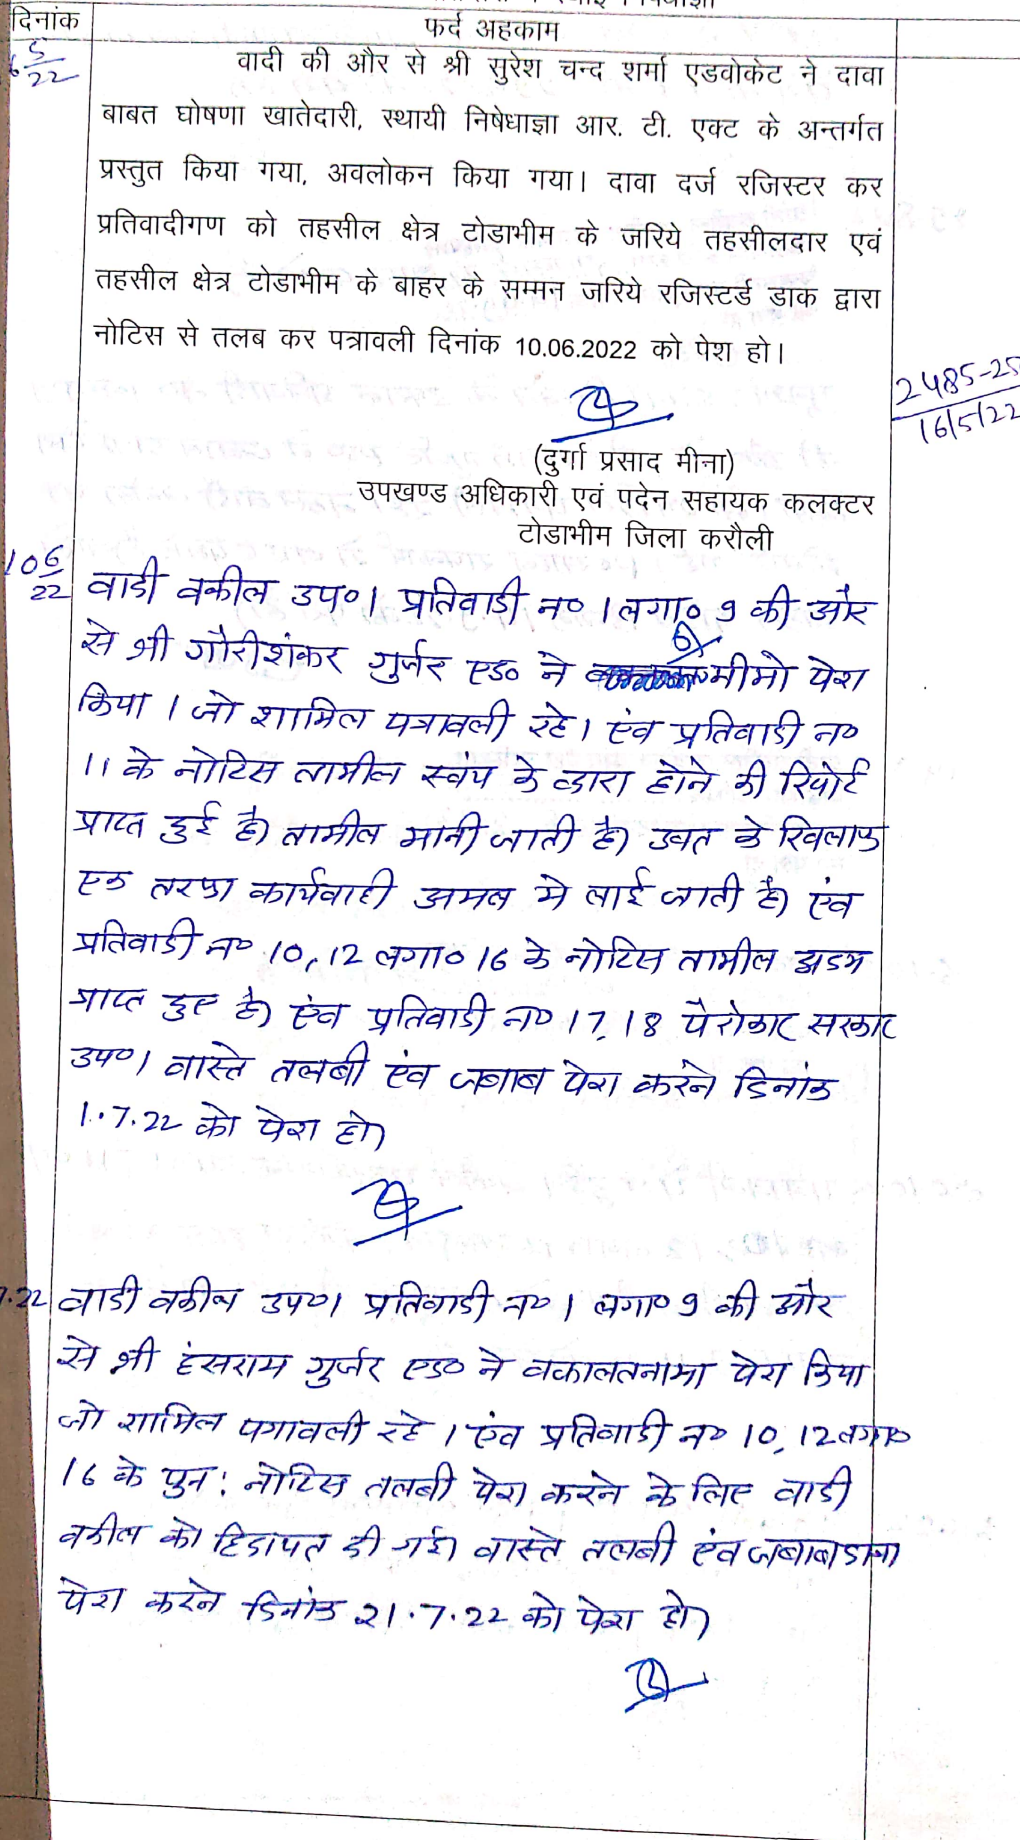 दिनांक
फर्द अहकाम
5
22
वादी की और से श्री सुरेश चन्द शर्मा एडवोकेट ने दावा
बाबत घोषणा खातेदारी, स्थायी निषेधाज्ञा आर. टी. एक्ट के अन्तर्गत
प्रस्तुत किया गया, अवलोकन किया गया। दावा दर्ज रजिस्टर कर
प्रतिवादीगण को तहसील क्षेत्र टोडाभीम के जरिये तहसीलदार एवं
तहसील क्षेत्र टोडाभीम के बाहर के सम्मन जरिये रजिस्टर्ड डाक द्वारा
नोटिस से तलब कर पत्रावली दिनांक 10.06.2022 को पेश हो।
2485-25
16/5/22
(दुर्गा प्रसाद मीना)
उपखण्ड अधिकारी एवं पदेन सहायक कलक्टर
टोडाभीम जिला करौली
10 6
22
वादी वकील उप०। प्रतिवादी न० 1 लगा० 9 की और
से श्री गौरीशंकर गुर्जर एड० ने मीमो पेश
किया । जो शामिल पत्रावली रहे। एंव प्रतिवादी न०
11 के नोटिस तामील स्वंय के द्वारा होने की रिपोर्ट
प्राप्त हुई है। तामील मानी जाती है। उक्त के खिलाफ
एक तरफा कार्यवाही अमल मे लाई जाती है। एंव
प्रतिवादी न० 10,12 लगा० 16 के नोटिस तामील अदम
प्राप्त हुए है। एंव प्रतिवादी न० 17,18 पैरोकार सरकार
उप०। वास्ते तलबी एंव जबाब पेश करने दिनांक
1.7.22 को पेश हो।
.22 वादी वकील उप०। प्रतिवादी न० 1 लगा० 9 की और
से श्री हंसराम गुर्जर एड० ने वकालतनामा पेश किया
जो शामिल पत्रावली रहे । एंव प्रतिवादी न० 10,12 लगा०
16 के पुन: नोटिस तलबी पेश करने के लिए वादी
वकील को हिदायत दी गई। वास्ते तलबी एंव जबाबदावा
पेश करने दिनांक 21.7.22 को पेश हो।